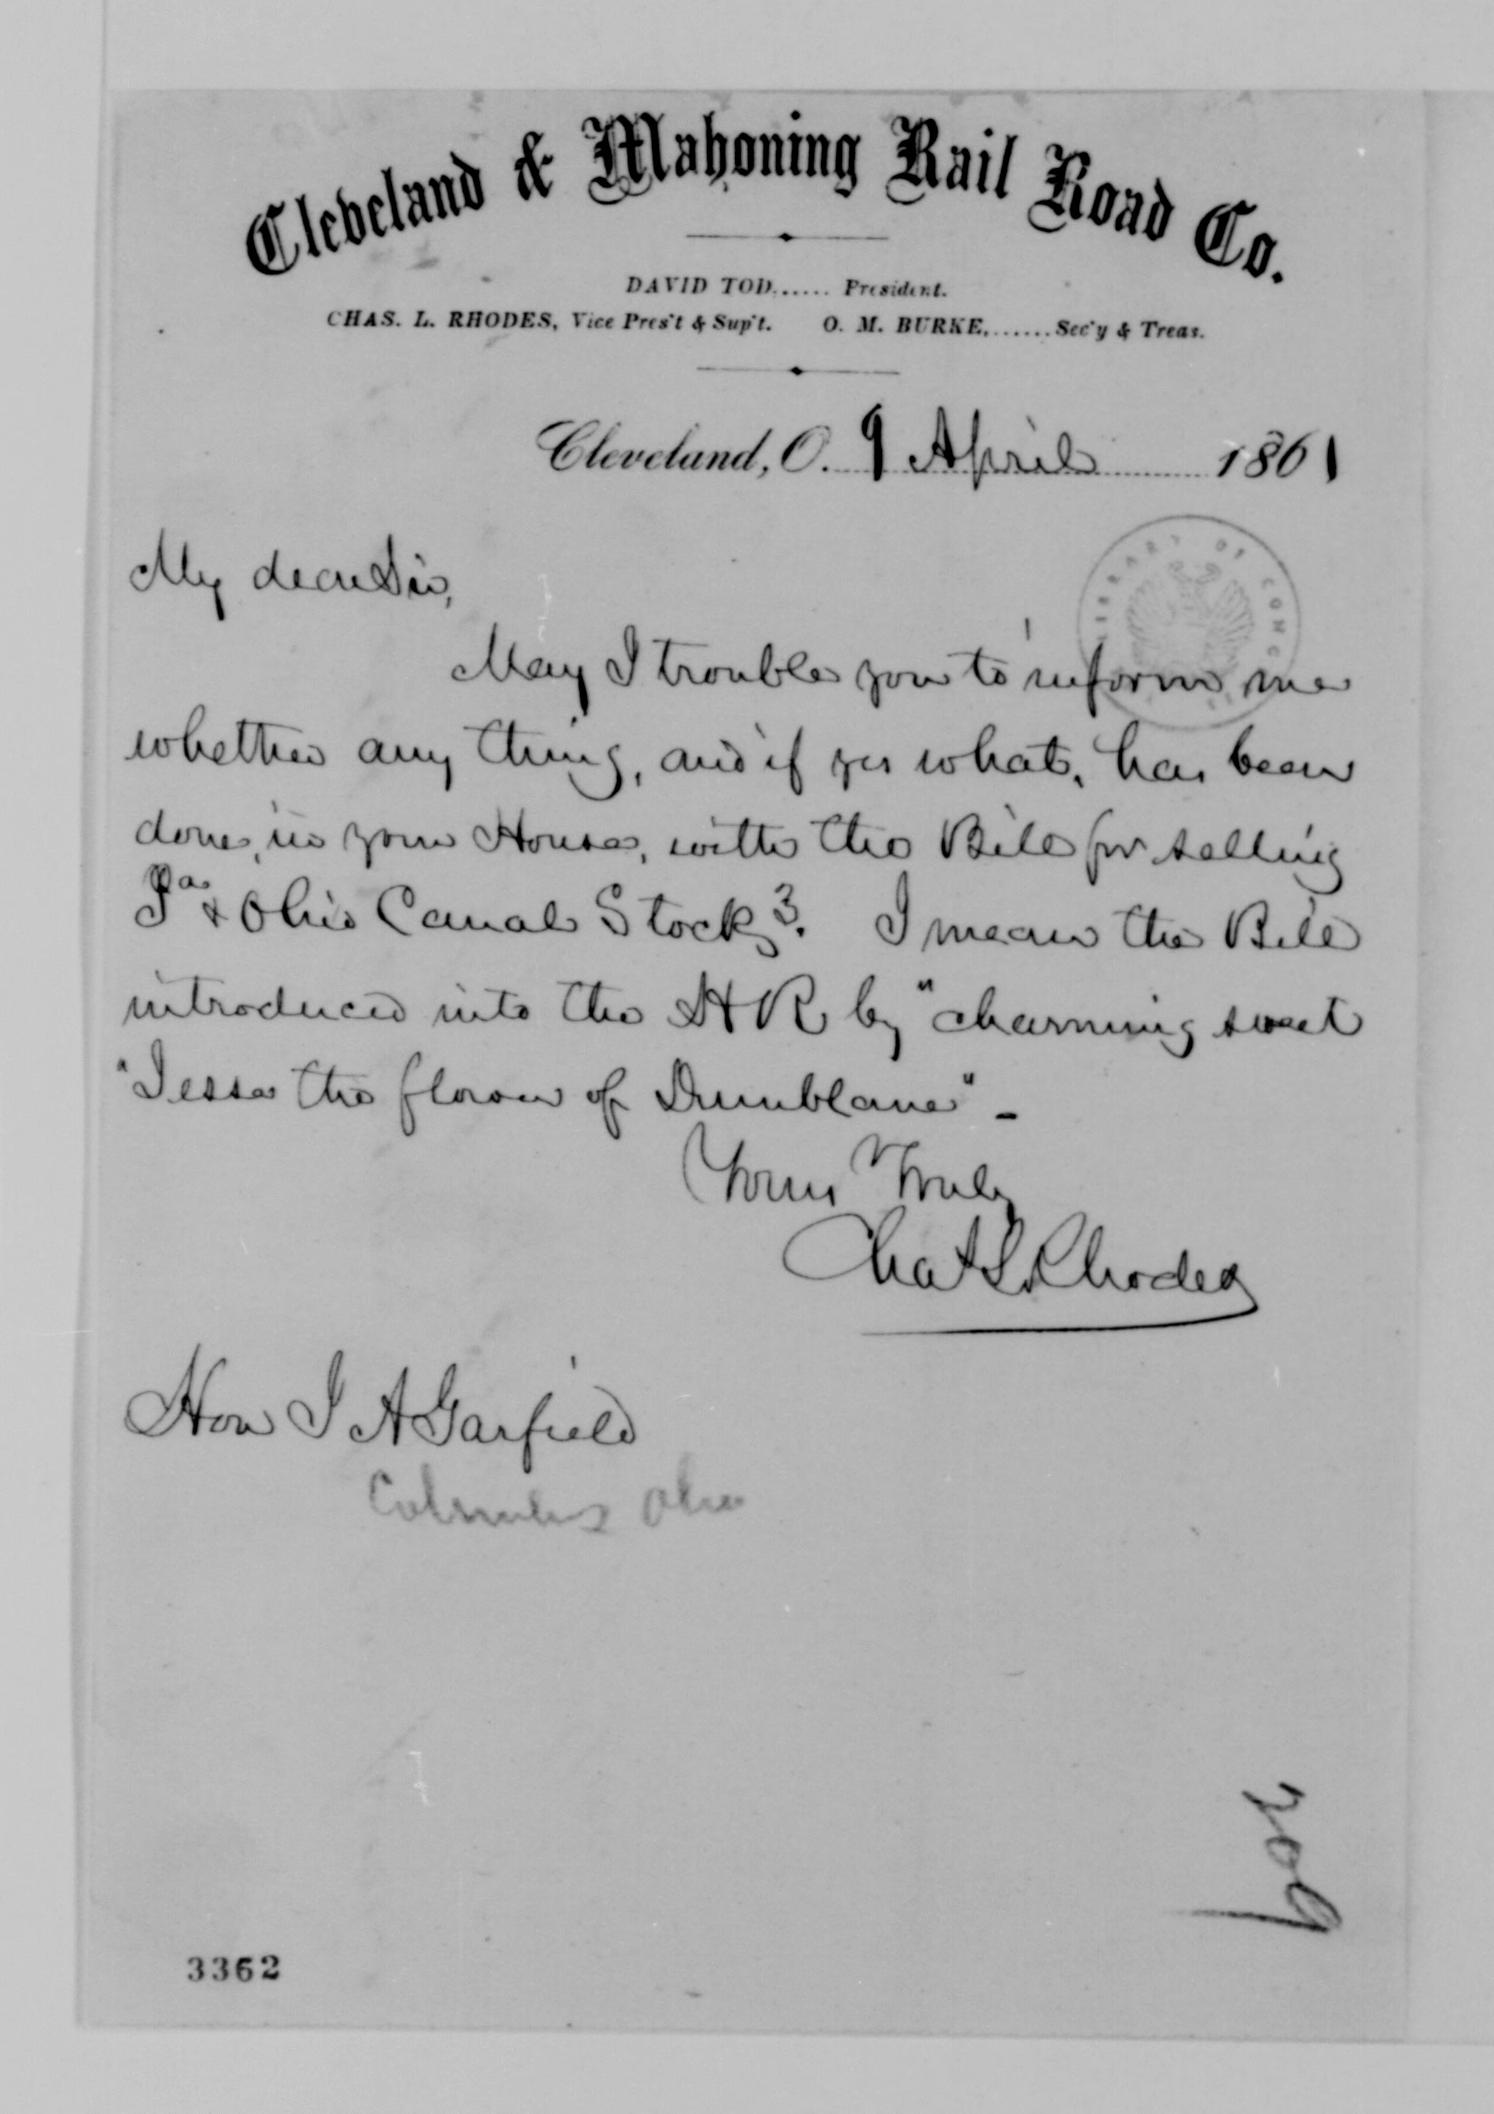 Cleveland & Mahoning Rail Road Co.
DAVID TOD...... President.
CHAS. L. RHODES, Vice Pres't & Sup't. O. M. BURKE,......Sec'y & Treas.
Cleveland, O. 9 April 1861
LIBRARY OF CONG
My dear Sir,
May I trouble you to inform me
whether any thing, and if yes what, has been
done, in your House, with the Bill for selling
Pa & Ohio Canal Stock?. I mean the Bill
introduced into the H R by "charming sweet
"Jesse the flower of Dumblane" -
Yours Truly
Chas L. Rhodes
Hon J A Garfield
Columbus Ohio
3362